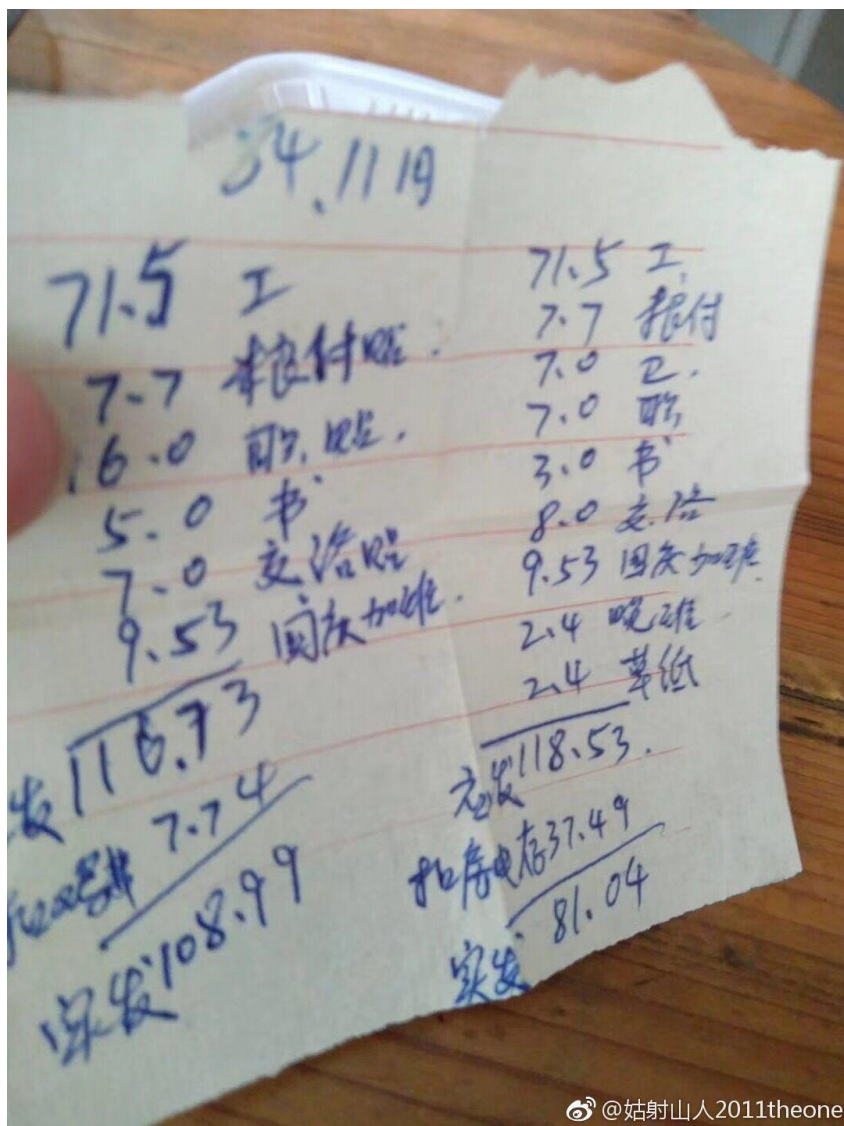 84.11月
71.5 工
7.7 粮付贴.
16.0 职.贴.
5.0 书
7.0 交洗贴
9.53 国庆加班.
发116.73
7.74
实发108.99
71.5 工.
7.7 粮付
7.0 卫.
7.0 职
3.0 书
8.0 交洗
9.53 国庆加班.
2.4 晚班.
2.4 草纸
应发118.53.
扣房电存37.49
81.04
实发
@姑射山人2011theone